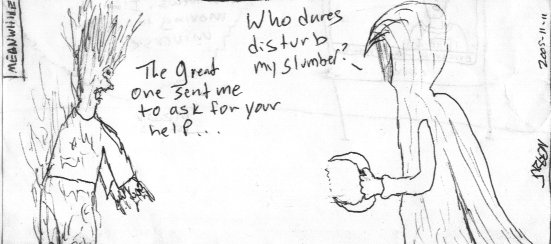 MEANWHILE
Who dares
disturb
my slumber?
The great
one sent me
to ask for your
help...
2005-11-11